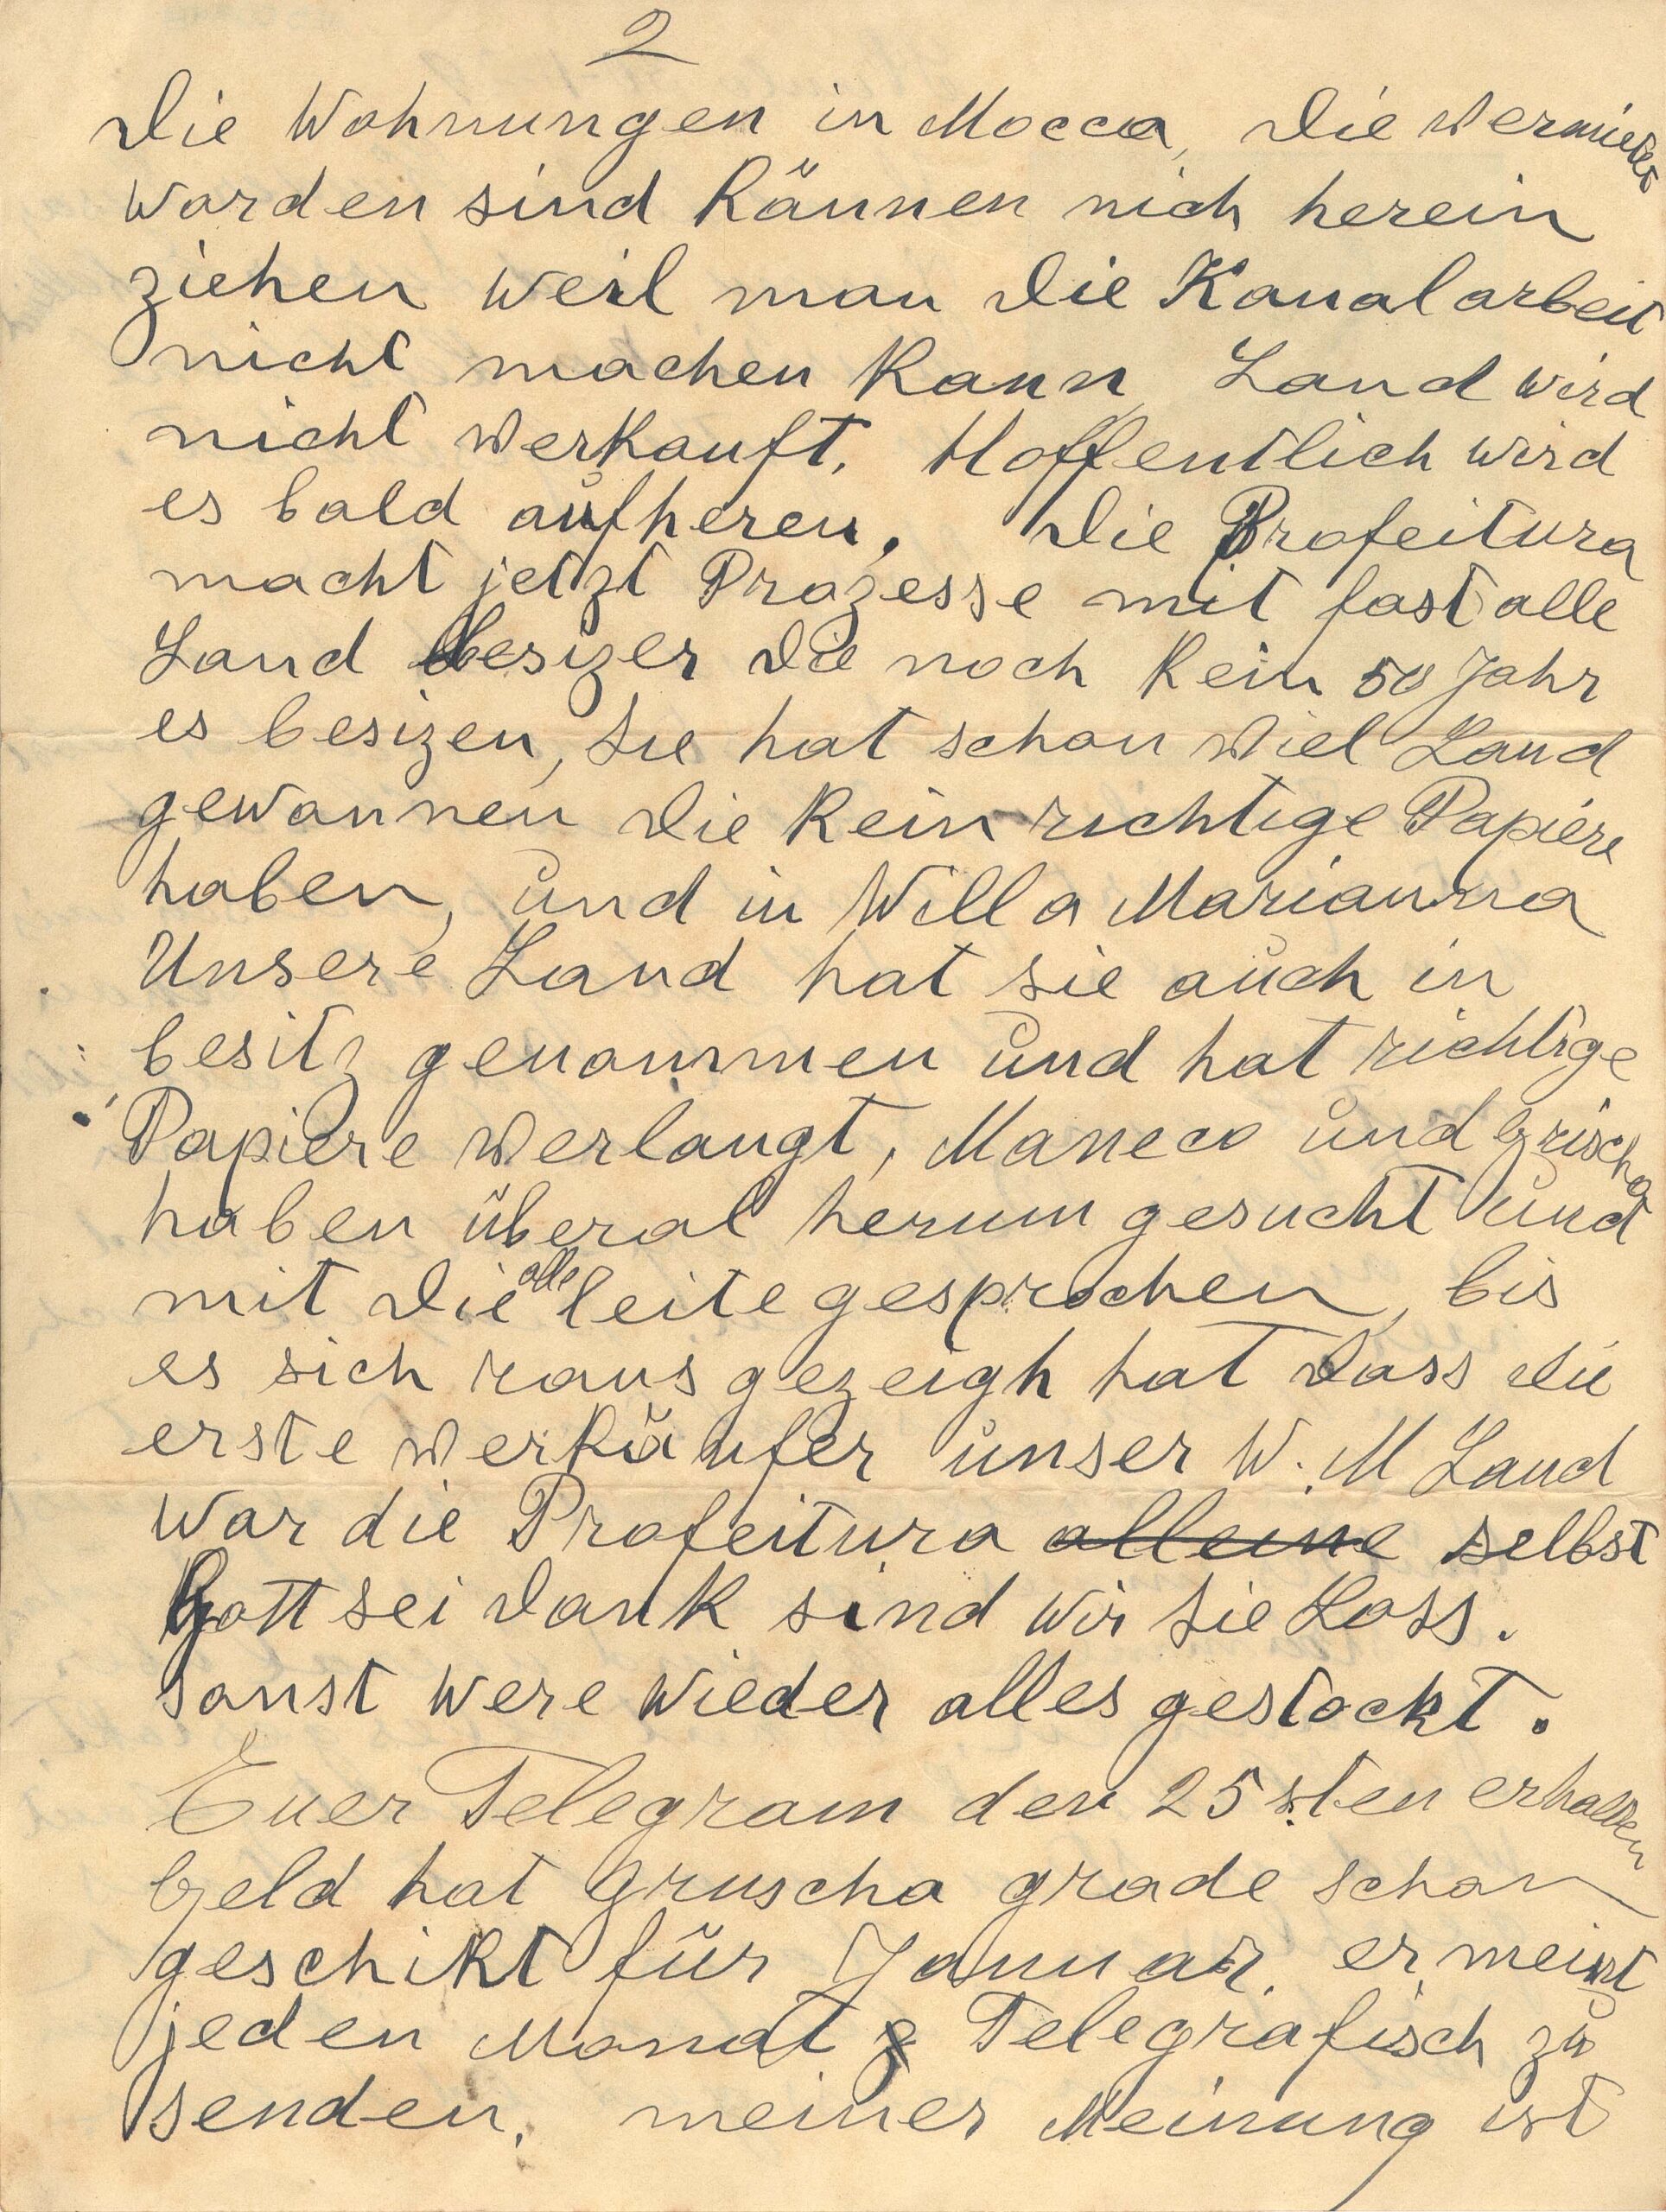 2
Die Wohnungen in Mocca, die wermietet
worden sind kännen nich herein
ziehen weil man die Kanalarbeit
nicht machen kann, Land wird
nicht werkauft. Hoffentlich wird
es bald aufheren. Die Profeitura
macht jetzt Prozesse mit fast alle
Land besizer die noch kein 50 Jahr
es besizen, sie hat schon wiel Land
gewonnen die kein richtige Papiere
haben, und in Willa Marianna
Unsere Land hat sie auch in
besitz genommen und hat richtige
Papiere werlangt, Maneco und Grischa
haben überal herum gesucht und
mit die alle leite gesprochen, bis
es sich raus gezeigh hat dass die
erste werkäufer unser W. M Land
war die Profeitura alleine selbst
Gott sei dank sind wir sie Loss.
sonst were wieder alles gestockt.
Euer Telegram den 25sten erhalten
Geld hat Gruscha grade schon
geschikt für Januar. er meint
jeden Monat Telegrafisch zu
senden. meiner Meinung ist